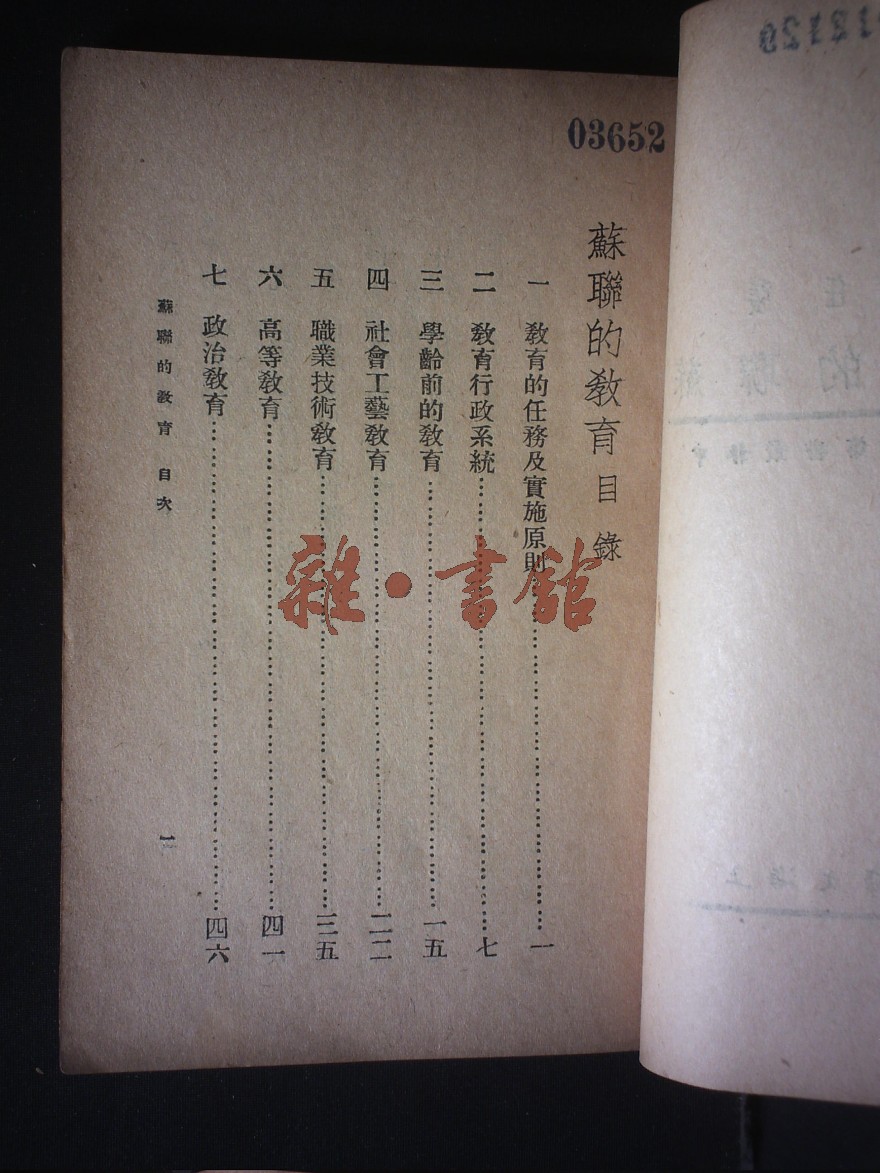 03652
蘇聯的敎育 目錄
一 敎育的任務及實施原則……一
二 敎育行政系統……七
三 學齡前的敎育……一五
四 社會工藝敎育……二二
五 職業技術敎育……三五
六 高等敎育……四一
七 政治敎育……四六
蘇聯的敎育 目次 一
雜·書館